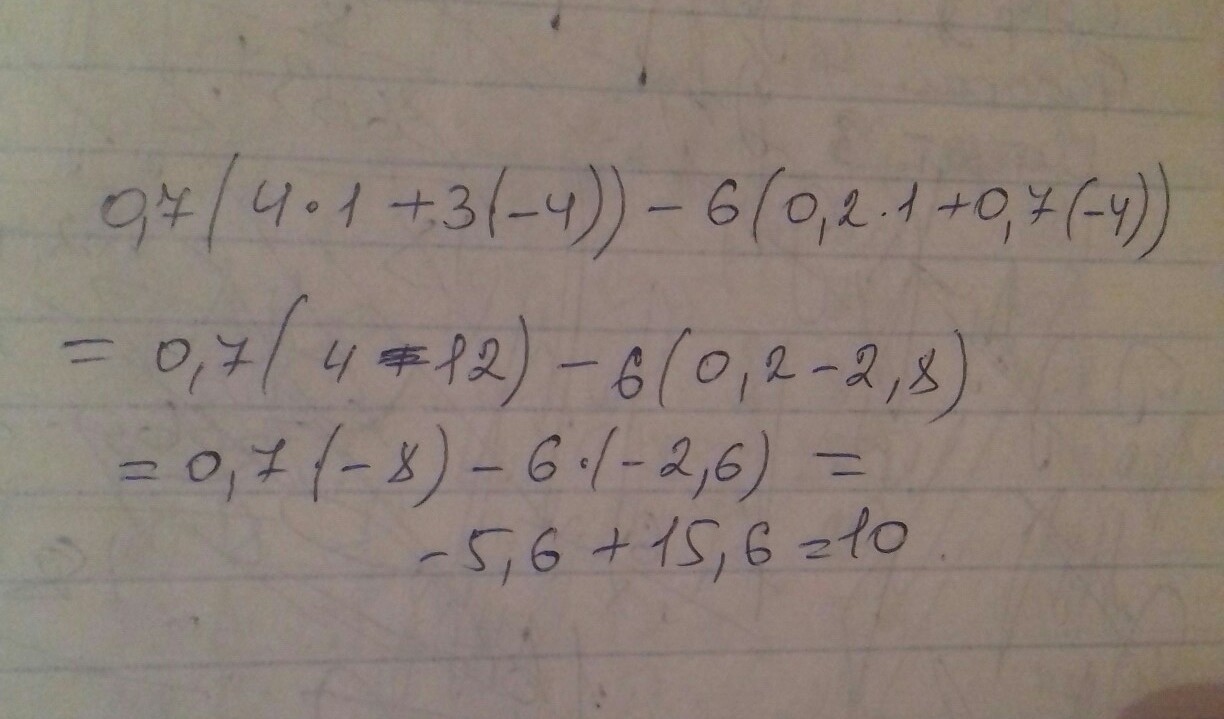 0,7(4·1+3(-4))-6(0,2·1+0,7(-4))
=0,7(4-12)-6(0,2-2,8)
=0,7·(-8)-6·(-2,6)=
-5,6+15,6=10